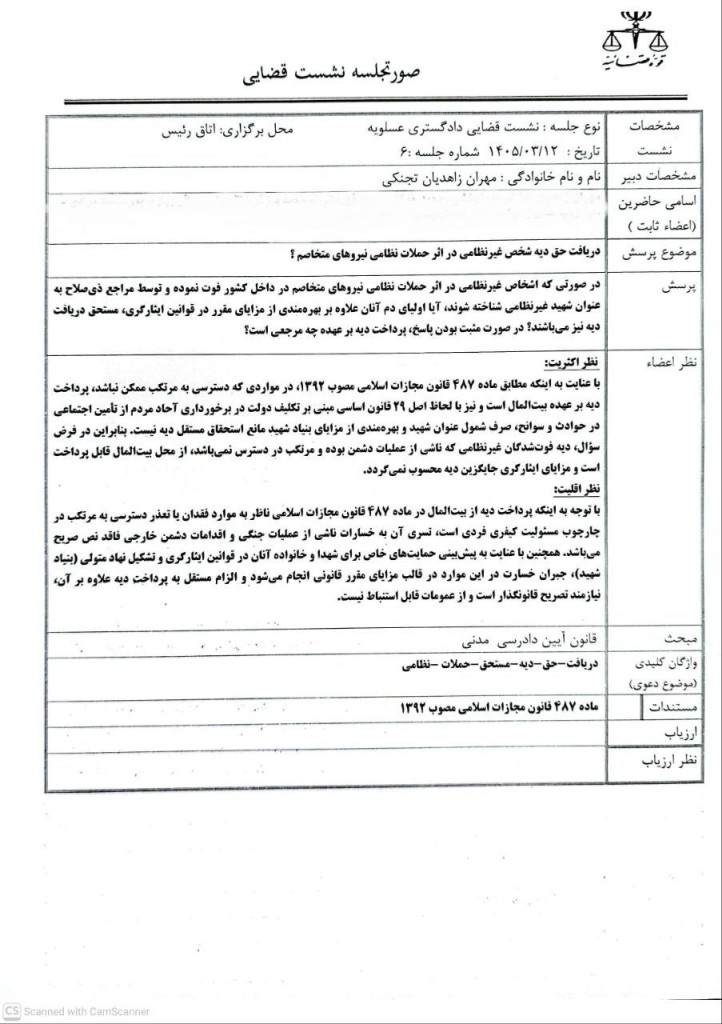 قوه قضائیه
صورتجلسه نشست قضایی
مشخصات نشست
نوع جلسه : نشست قضایی دادگستری عسلویه محل برگزاری: اتاق رئیس
تاریخ : ۱۴۰۵/۰۳/۱۲ شماره جلسه :۶
مشخصات دبیر
نام و نام خانوادگی : مهران زاهدیان تجنکی
اسامی حاضرین
(اعضاء ثابت )
موضوع پرسش
دریافت حق دیه شخص غیرنظامی در اثر حملات نظامی نیروهای متخاصم ؟
پرسش
در صورتی که اشخاص غیرنظامی در اثر حملات نظامی نیروهای متخاصم در داخل کشور فوت نموده و توسط مراجع ذی‌صلاح به
عنوان شهید غیرنظامی شناخته شوند، آیا اولیای دم آنان علاوه بر بهره‌مندی از مزایای مقرر در قوانین ایثارگری، مستحق دریافت
دیه نیز می‌باشند؟ در صورت مثبت بودن پاسخ، پرداخت دیه بر عهده چه مرجعی است؟
نظر اعضاء
نظر اکثریت:
با عنایت به اینکه مطابق ماده ۴۸۷ قانون مجازات اسلامی مصوب ۱۳۹۲، در مواردی که دسترسی به مرتکب ممکن نباشد، پرداخت
دیه بر عهده بیت‌المال است و نیز با لحاظ اصل ۲۹ قانون اساسی مبنی بر تکلیف دولت در برخورداری آحاد مردم از تأمین اجتماعی
در حوادث و سوانح، صرف شمول عنوان شهید و بهره‌مندی از مزایای بنیاد شهید مانع استحقاق مستقل دیه نیست. بنابراین در فرض
سؤال، دیه فوت‌شدگان غیرنظامی که ناشی از عملیات دشمن بوده و مرتکب در دسترس نمی‌باشد، از محل بیت‌المال قابل پرداخت
است و مزایای ایثارگری جایگزین دیه محسوب نمی‌گردد.
نظر اقلیت:
با توجه به اینکه پرداخت دیه از بیت‌المال در ماده ۴۸۷ قانون مجازات اسلامی ناظر به موارد فقدان یا تعذر دسترسی به مرتکب در
چارچوب مسئولیت کیفری فردی است، تسری آن به خسارات ناشی از عملیات جنگی و اقدامات دشمن خارجی فاقد نص صریح
می‌باشد. همچنین با عنایت به پیش‌بینی حمایت‌های خاص برای شهدا و خانواده آنان در قوانین ایثارگری و تشکیل نهاد متولی (بنیاد
شهید)، جبران خسارت در این موارد در قالب مزایای مقرر قانونی انجام می‌شود و الزام مستقل به پرداخت دیه علاوه بر آن،
نیازمند تصریح قانونگذار است و از عمومات قابل استنباط نیست.
مبحث
قانون آیین دادرسی مدنی
واژگان کلیدی
(موضوع دعوی)
دریافت-حق-دیه-مستحق-حملات -نظامی
مستندات
ماده ۴۸۷ قانون مجازات اسلامی مصوب ۱۳۹۲
ارزیاب
نظر ارزیاب
CS Scanned with CamScanner